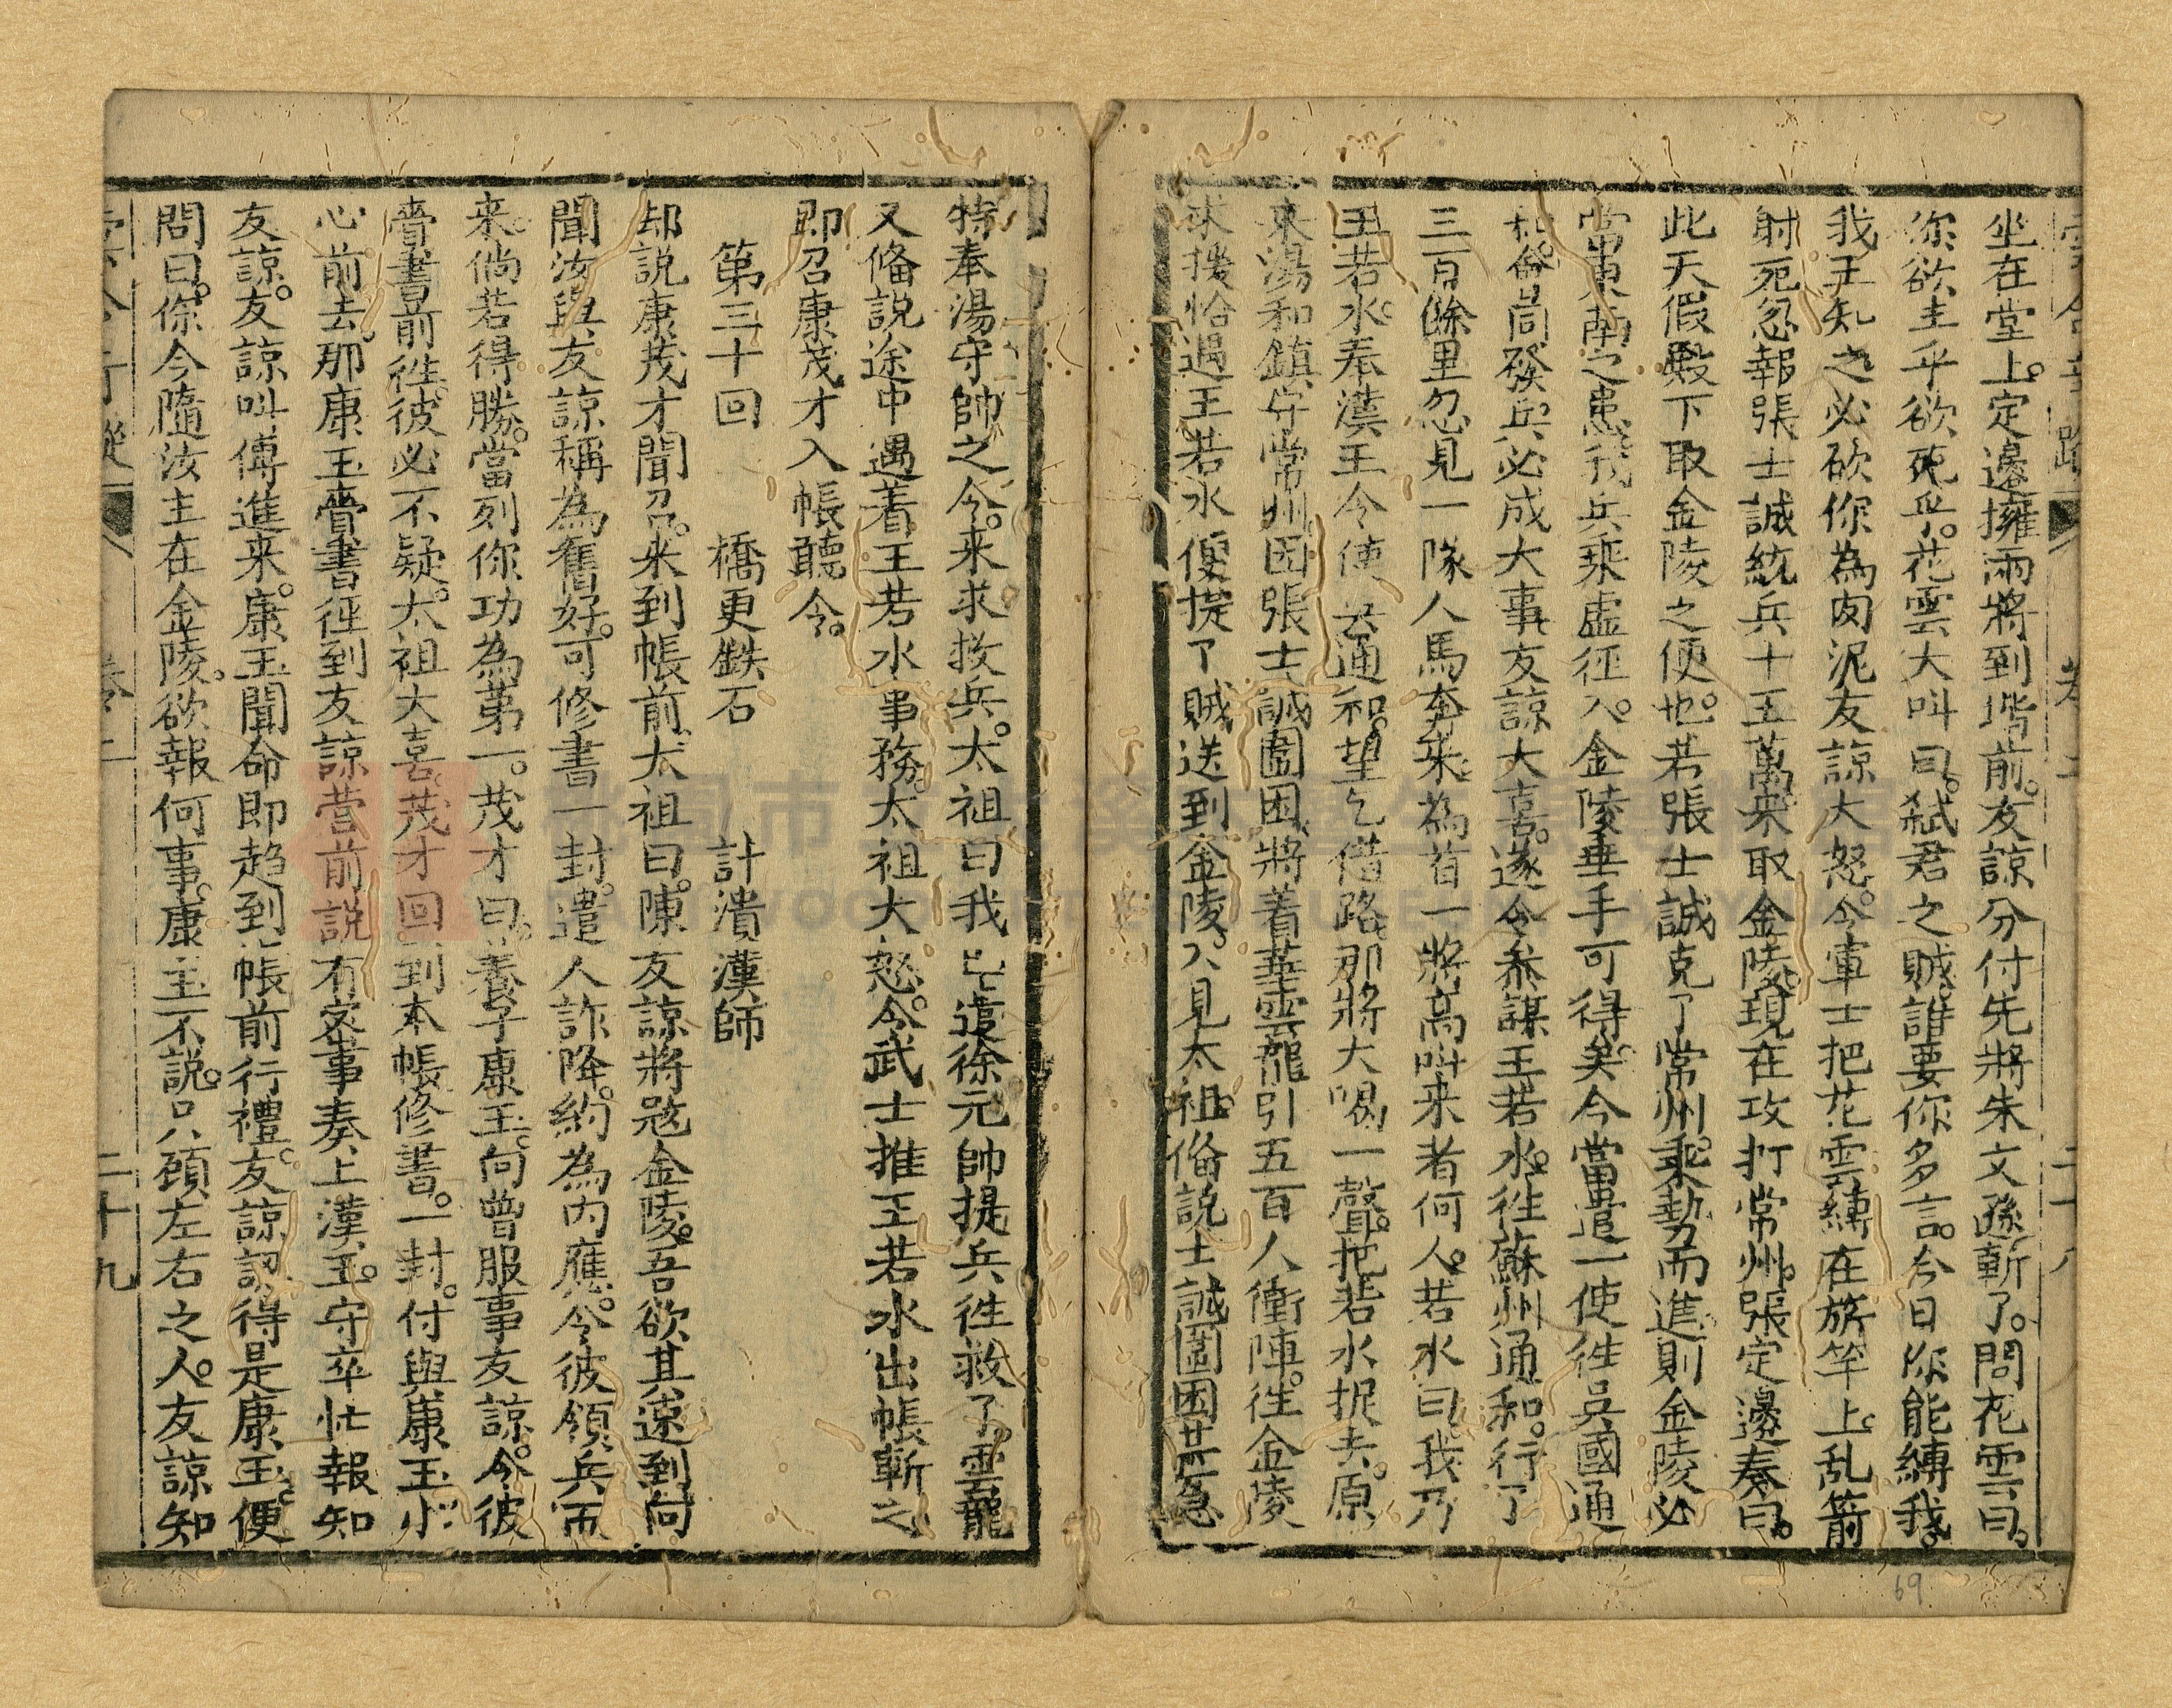 坐在堂上。定邊擁兩將到堦前。友諒分付先將朱文遜斬了。問花雲曰。
你欲生乎欲死乎。花雲大呌曰。弑君之賊。誰要你多言。今日你能縛我。
我王知之必砍你為肉泥友諒大怒。令軍士把花雲縛在旂竿上。乱箭
射死忽報張士誠統兵十五萬來取金陵。現在攻打常州。張定邊奏曰。
此天假殿下取金陵之便也。若張士誠克了常州。乘勢而進則金陵必
當東南之患我兵乘虛徑入。金陵垂手可得矣今當遣一使徃吳國通
和。偹同發兵必成大事友諒大喜。遂令叅謀王若水。徃蘇州通和。行了
三百餘里忽見一隊人馬奔來。為首一將高呌来者何人。若水曰。我乃
王若水。奉漢王令使去通和。望乞借路。那將大喝一聲。把若水捉去。原
來湯和鎮守常州。因張士誠圍困。將着華雲龍引五百人衝陣。徃金陵
求援恰遇王若水便捉了賊送到金陵。入見太祖。偹說士誠圍困甚急
特奉湯守帥之令。来求救兵。太祖曰我已遣徐元帥提兵徃救了。雲龍
又偹說途中遇着王若水事務。太祖大怒。令武士推王若水出帳斬之
即召康茂才入帳聽令。
第三十回　橋更鉄石　計潰漢師
却說康茂才聞召。来到帳前。太祖曰。陳友諒將冦金陵。吾欲其速到向
聞汝與友諒稱為舊好。可修書一封。遣人詐降。約為內應。令彼領兵而
来。倘若得勝。當刻你功為第一。茂才曰。養子康玉。向曾服事友諒。令彼
賫書前徃。彼必不疑。太祖大喜。茂才回到本帳修書。一封。付與康玉小
心前去。那康玉賫書徑到友諒營前說有宻事奏上漢王。守卒忙報知
友諒。友諒呌傳進来。康玉聞命即趋到帳前行禮。友諒認得是康玉。便
問曰。你今隨汝主在金陵。欲報何事。康玉不說。只顧左右之人。友諒知
卷二
二十九